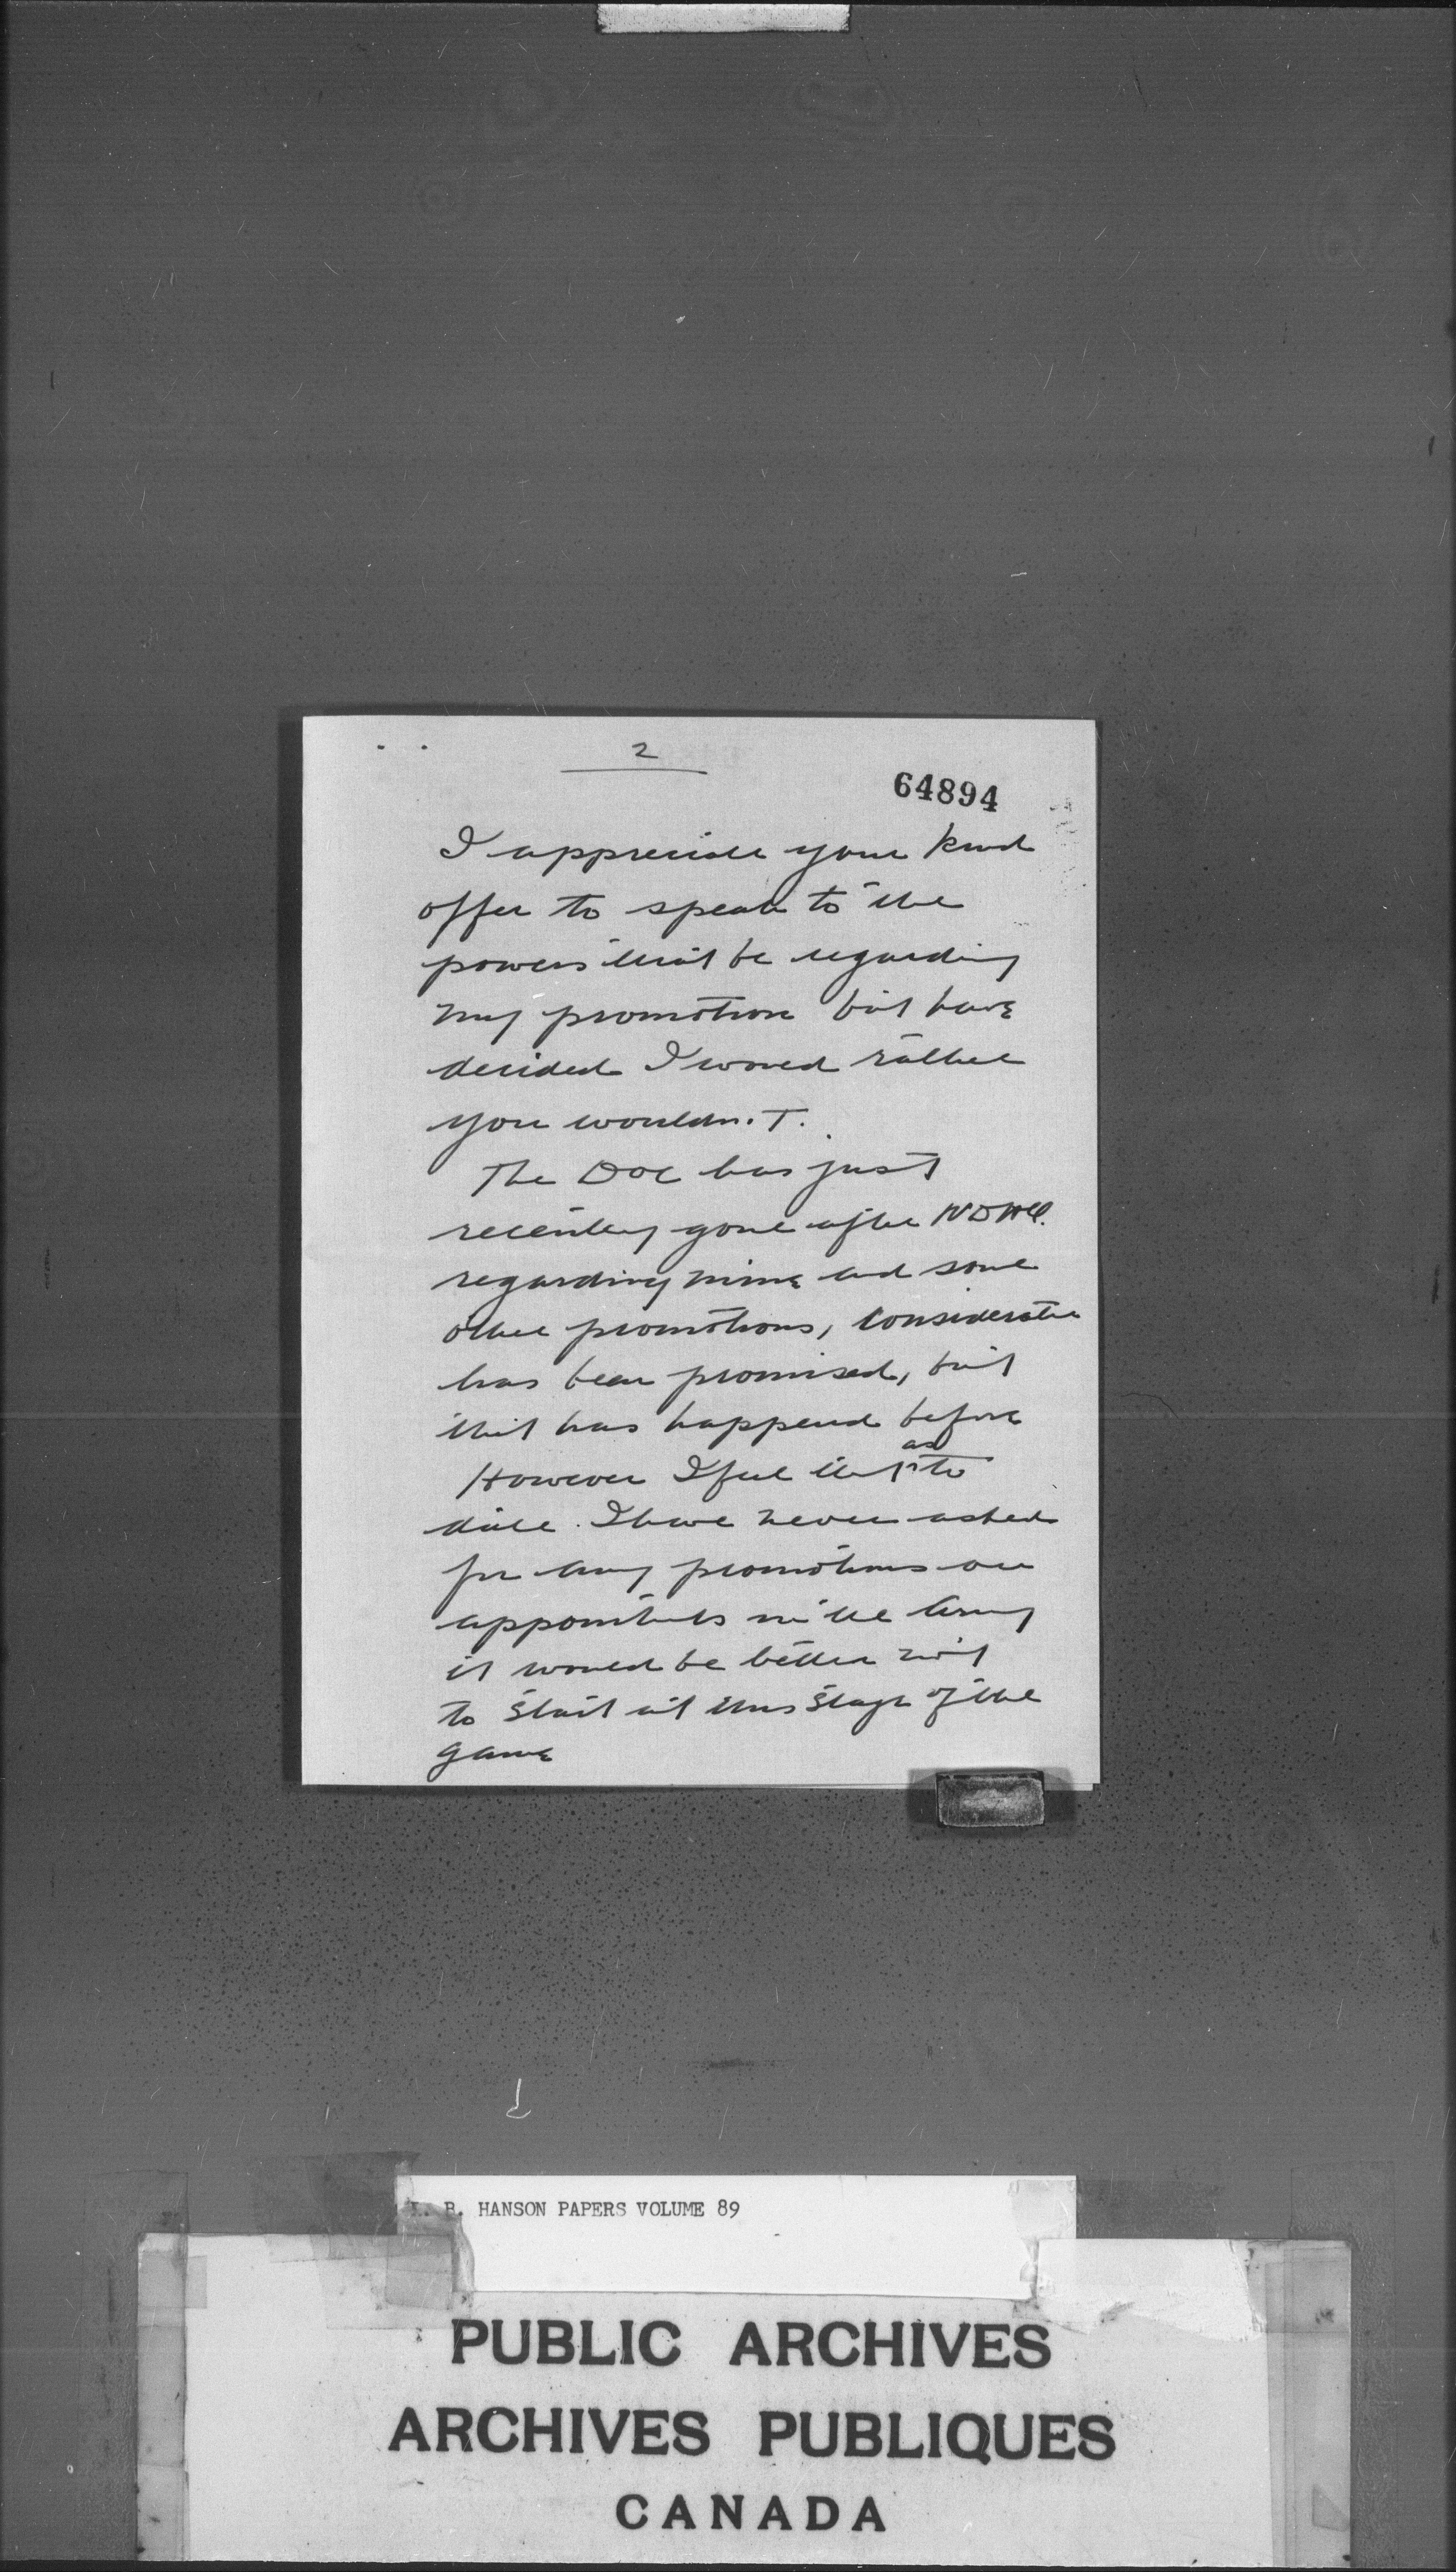 2
64894
I appreciate your kind
offer to speak to the
powers that be regarding
my promotion but have
decided I would rather
you wouldn.T.
The DOC has just
recently gone after NDHQ.
regarding mine and some
other promotions, consideration
has been promised, but
that has happend before
However I feel that as to
date. I have never asked
for any promotions or
appointments in the Army
it would be better not
to start at this stage of the
game
B. HANSON PAPERS VOLUME 89
PUBLIC ARCHIVES
ARCHIVES PUBLIQUES
CANADA